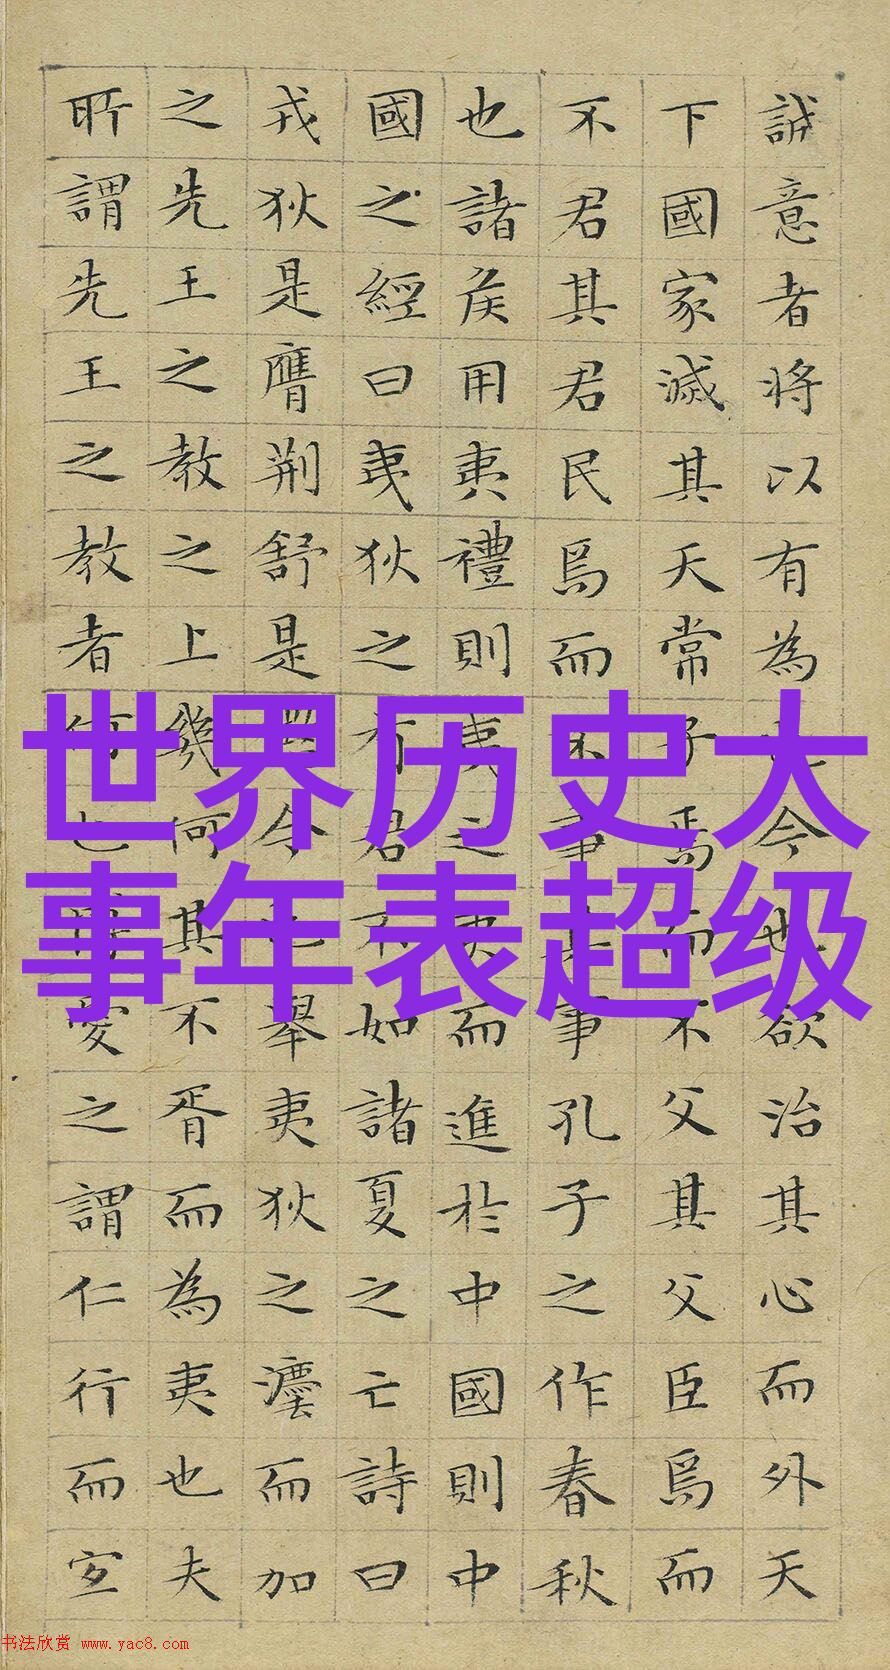 誠意者将以有為也今也欲治其心而外天
下國家滅其天常子焉而不父其父臣焉而
不君其君民焉而不事其事孔子之作春秋
也諸侯用夷禮則夷之夷而進於中國則中
國之經曰夷狄之有君不如諸夏之亡詩曰
戎狄是膺荆舒是今也舉夷狄之灋而加
之先王之教之上幾何其不胥而為夷也夫
所謂先王之教者何也愛之謂仁行而宜
世界历史大
事年表超级
书法欣赏 www.yac8.com